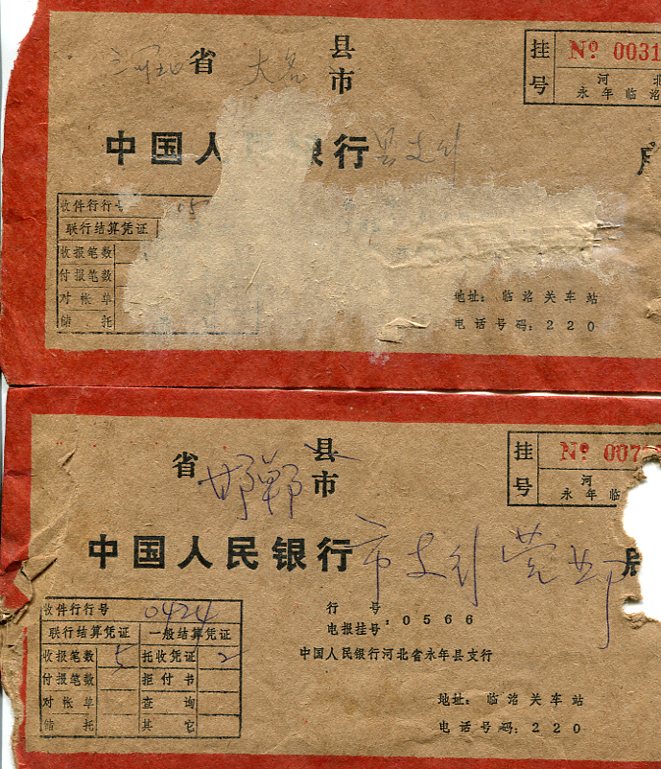 河北省 大名 县
市
挂号 № 0031
河北
永年临洺
中国人民银行县支行
收件行行号
联行结算凭证
收报笔数
付报笔数
对帐单
储托
地址：临洺关车站
电话号码：220
省 邯郸 县
市
挂号 № 007
河
永年临
中国人民银行市支行营业部
收件行行号 0424
联行结算凭证 一般结算凭证
收报笔数 5 托收凭证 2
付报笔数 拒付书
对帐单 查询
储托 其它
行号
电报挂号：0566
中国人民银行河北省永年县支行
地址：临洺关车站
电话号码：220